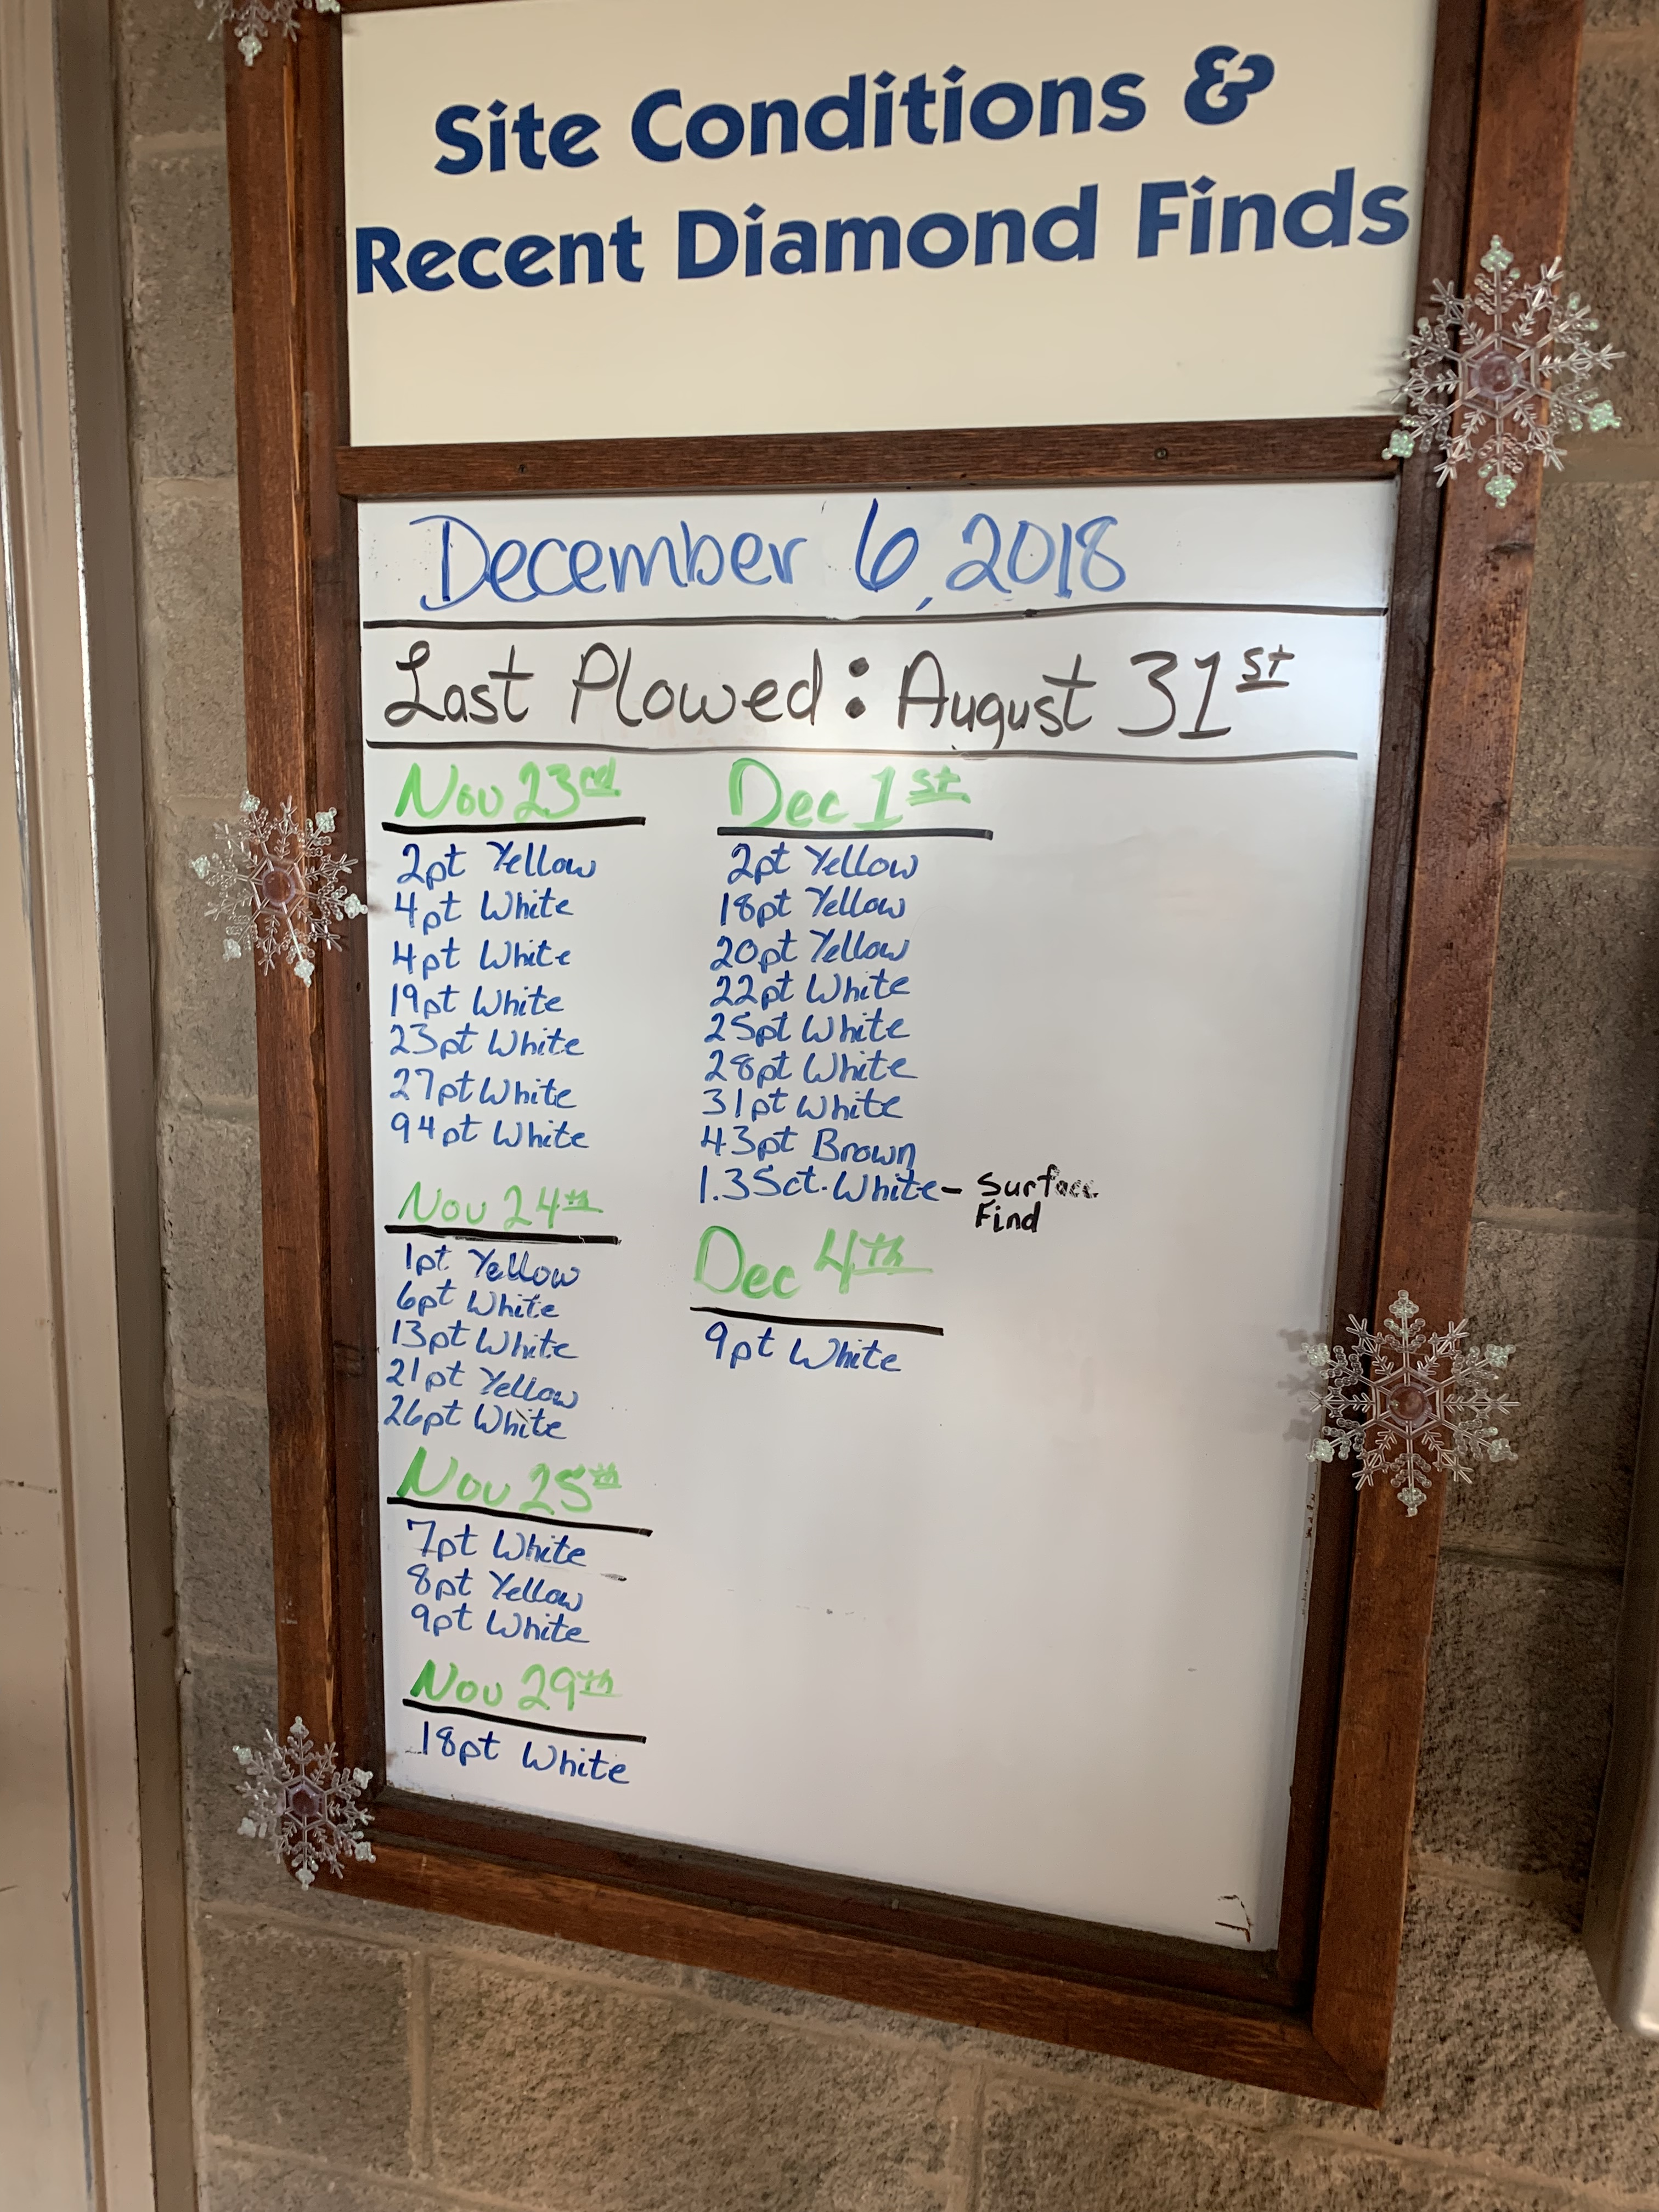 Site Conditions &
Recent Diamond Finds
December 6, 2018
Last Plowed: August 31st
Nov 23rd
2pt Yellow
4pt White
4pt White
19pt White
23pt White
27pt White
94pt White
Nov 24th
1pt Yellow
6pt White
13pt White
21pt Yellow
26pt White
Nov 25th
7pt White
8pt Yellow
9pt White
Nov 29th
18pt White
Dec 1st
2pt Yellow
18pt Yellow
20pt Yellow
22pt White
25pt White
28pt White
31pt White
43pt Brown
1.35ct. White - Surface
Find
Dec 4th
9pt White